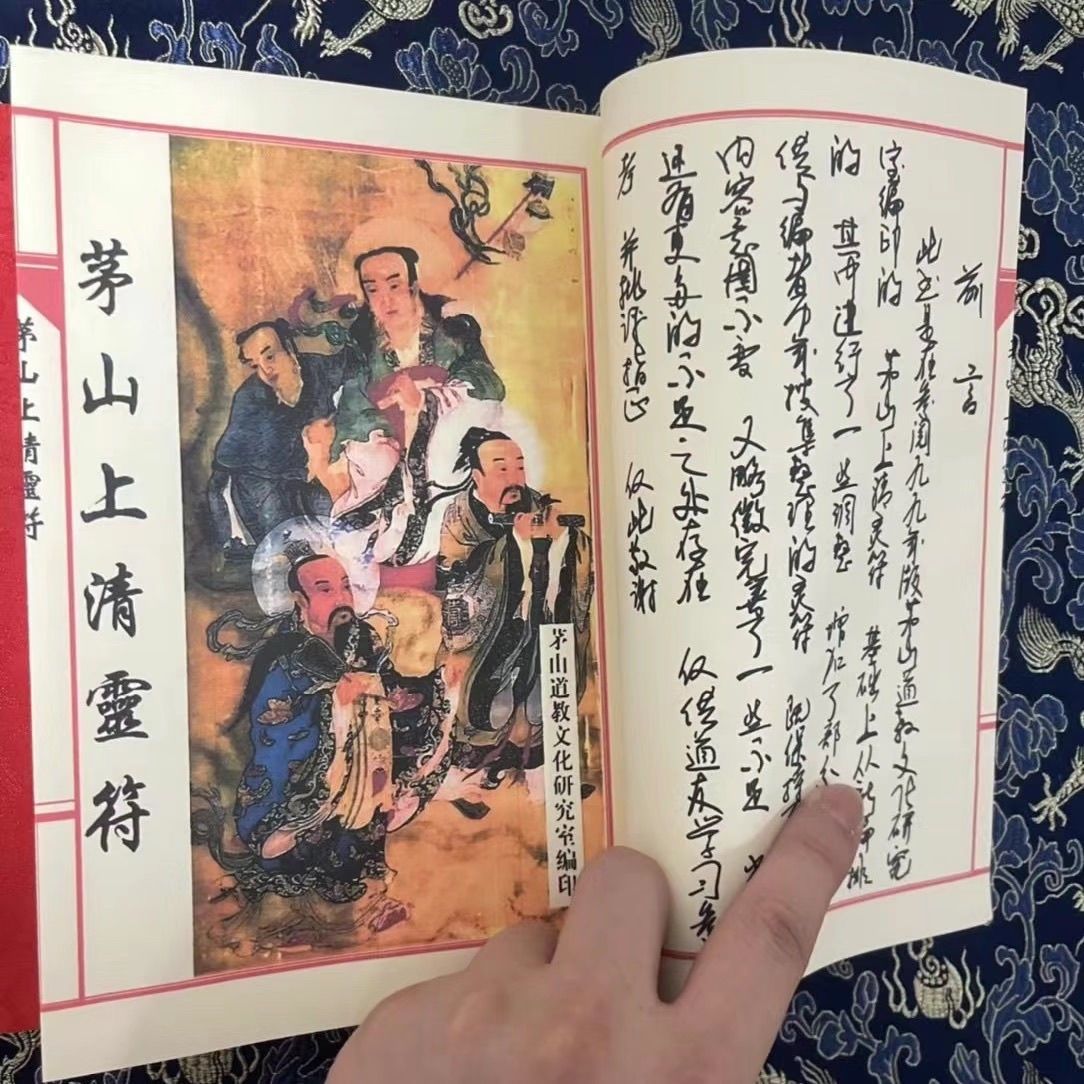 茅山上清靈符
茅山上清靈符
茅山道教文化研究室编印
前言
此书是在参阅九九年版茅山道教文化研究
室编印的 茅山上清灵符 基础上从新编排
的 其中进行了一些调整 增加了部分
编者 年搜集整理的灵符 既保持
内容范围不变 又略微完善了一些不足
还有更多的不足之处存在 仅供道友学习参
考 并批评指正 仅此敬谢